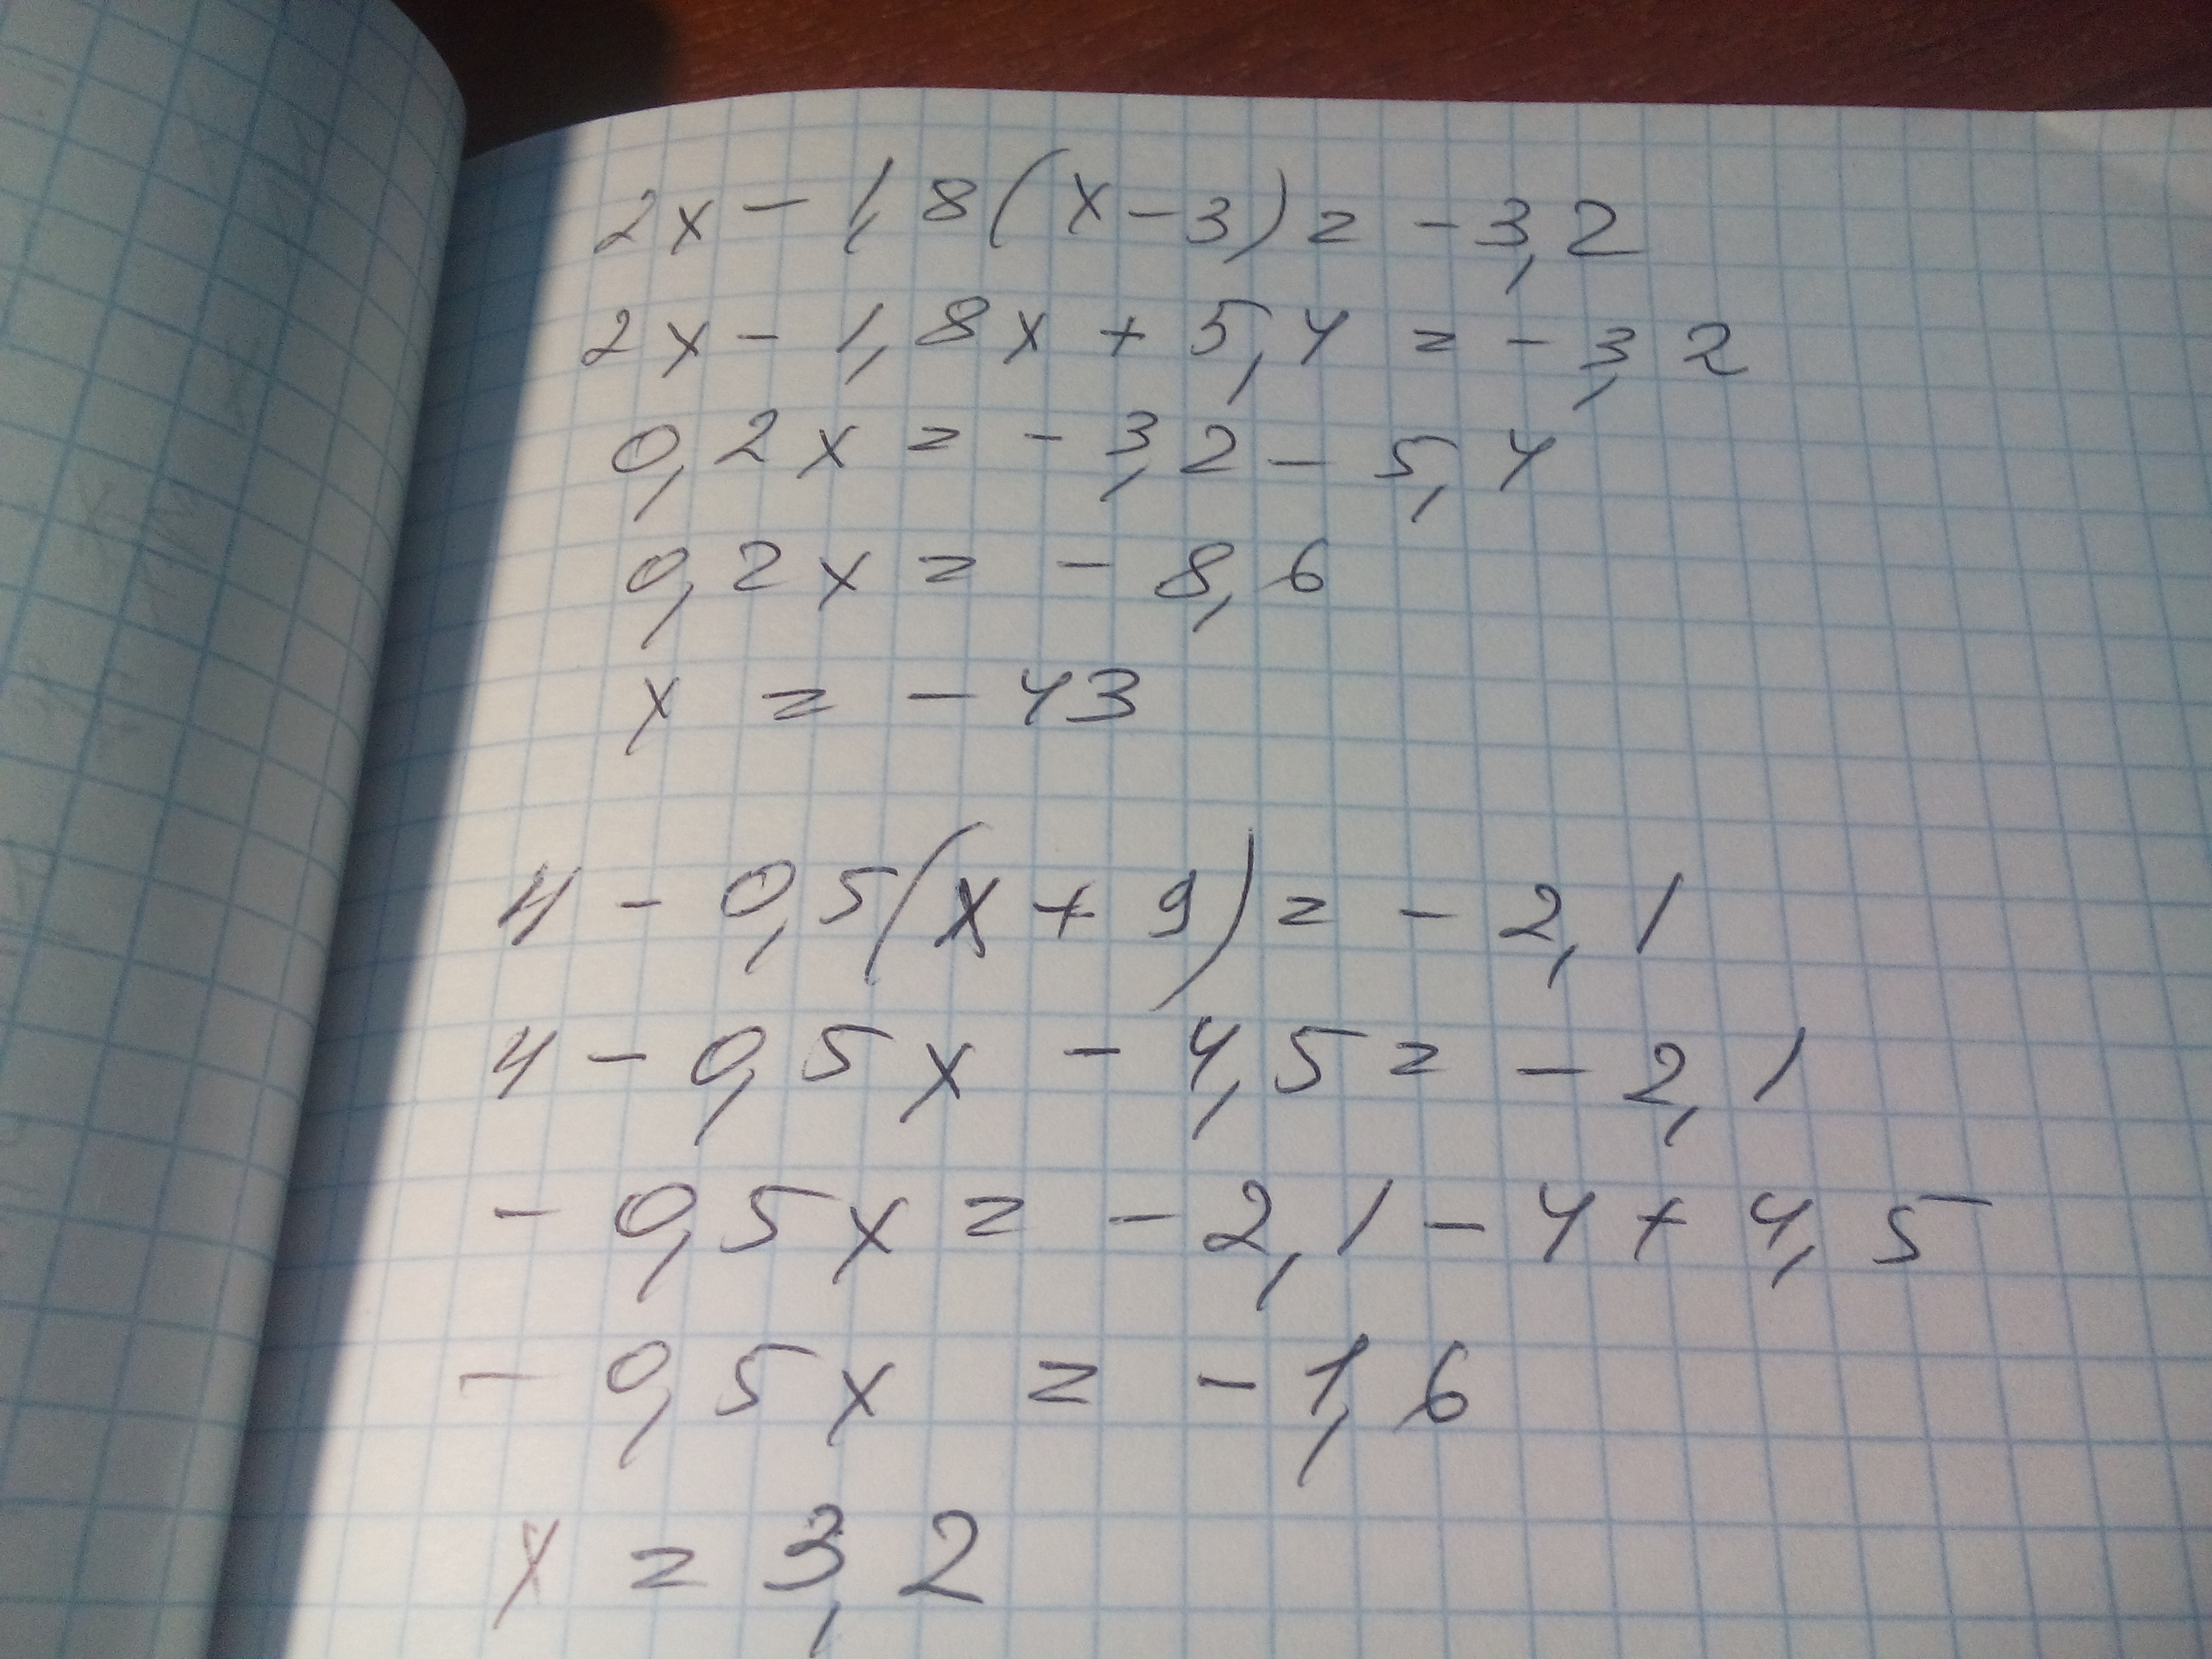 2x - 1,8(x - 3) = -3,2
2x - 1,8x + 5,4 = -3,2
0,2x = -3,2 - 5,4
0,2x = -8,6
x = -43
4 - 0,5(x + 9) = -2,1
4 - 0,5x - 4,5 = -2,1
-0,5x = -2,1 - 4 + 4,5
-0,5x = -1,6
x = 3,2